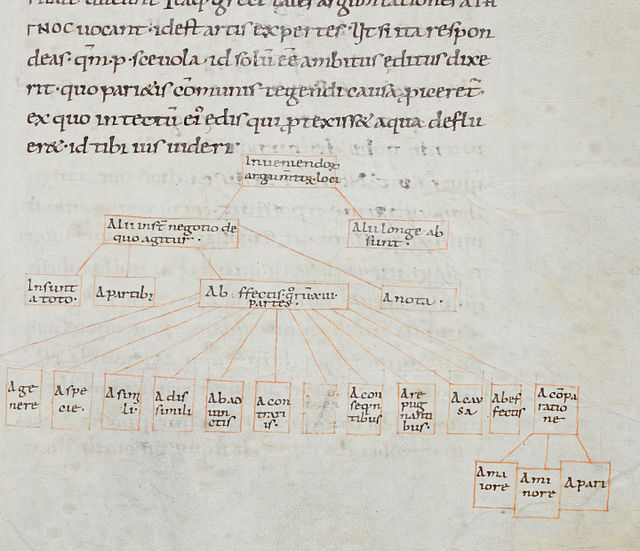 ΓNOC uocant · id est artis expertes · Ut si ita respon
deas · qm̄ · p · sceuola · id solū eē ambitus editus dixe
rit · quo pari&is cōmunis tegendi causa p̱iceret̄ ·
ex quo in tectū ei᷒ edis qui p̱texiss& aqua deflu
er& · id tibi ius uideri ·
Inueniendoꝝ
argum̄toꝝ loci
Alii insr̄ negotio de
quo agitur ·
Alii longe ab
sunt ·
Insunt
a toto ·
A partibꝫ
Ab effectis · qrū xiii
partes ·
A nota ·
A ge
nere
A spe
cie ·
A simi
li ·
A dis
simili
Ab ad
iun
ctis
A con
trari
is ·
A con
seqn
tibus
A re
pug
nanti
bus ·
A cau
sa ·
Ab ef
fectis
A cōpa
ratio
ne
A ma
iore
A mi
nore
A pari